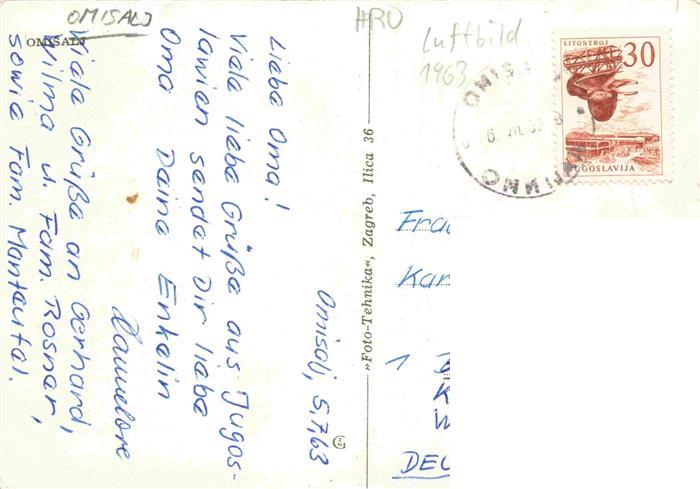 OMISALJ
OMISALJ
HRO
Luftbild
1963
LITOSTROJ
30
JUGOSLAVIJA
Omisalj, 5.7.63
Liebe Oma!
Viele liebe Grüße aus Jugos-
lawien sendet Dir liebe
Oma Deine Enkelin
Hannelore
Viele Grüße an Gerhard,
Wilma u. Fam. Rosner,
sowie Fam. Manteufel.
»Foto-Tehnika«, Zagreb, Ilica 36
Frau
Kar
1
K
W
DEU